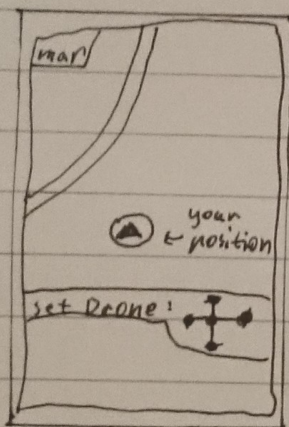 map
your
position
set Drone: